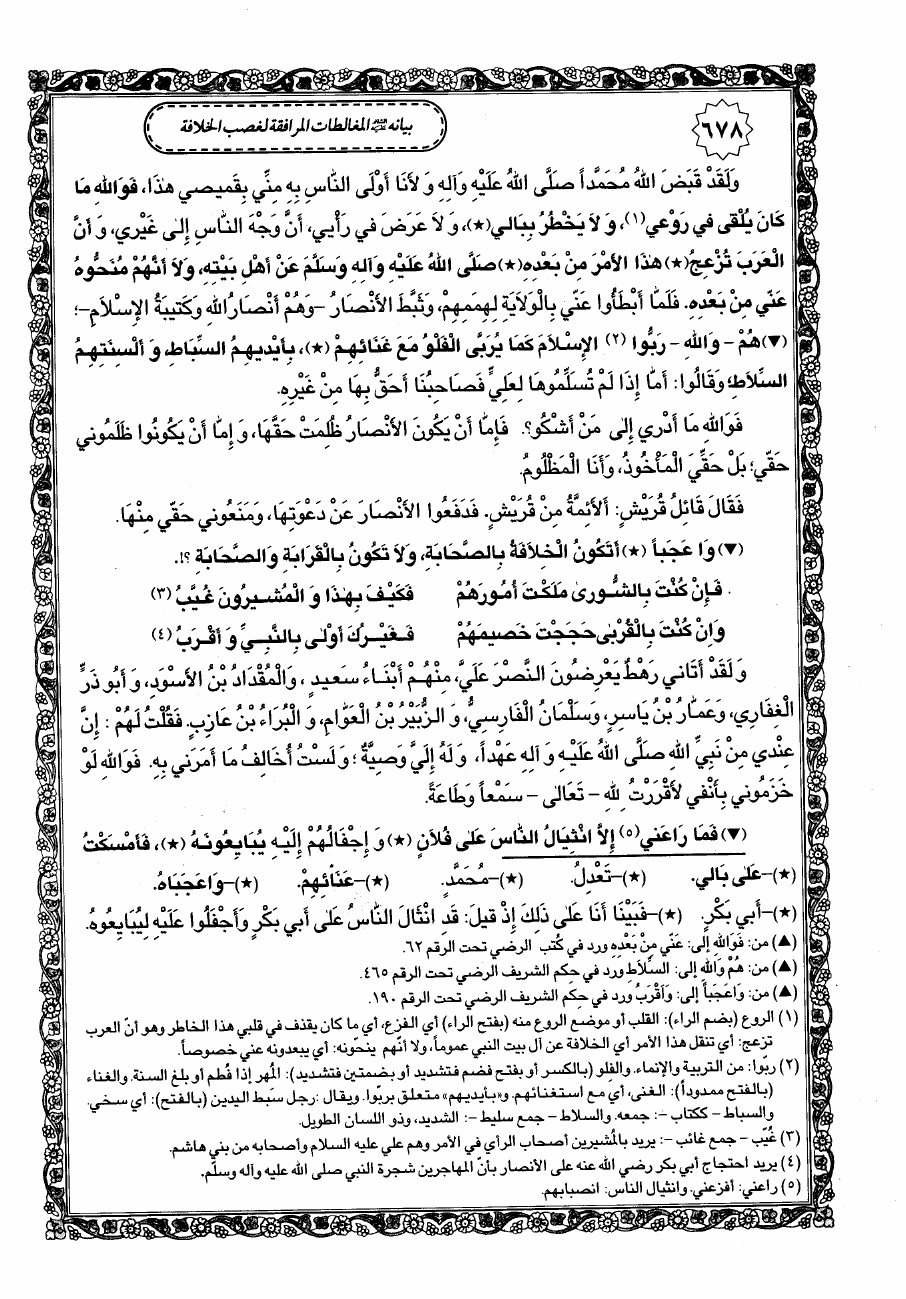 بيانه عليه السلام المغالطات المرافقة لغصب الخلافة
٦٧٨
وَلَقَدْ قَبَضَ اللهُ مُحَمَّداً صَلَّى اللهُ عَلَيْهِ وَآلِهِ وَ لأَنا أَوْلَى النَّاسِ بِهِ مِنِّي بِقَميصي هٰذَا، فَوَاللهِ مَا
كَانَ يُلْقى في رَوْعي(١)، وَ لاَ يَخْطُرُ بِبَالي(★)، وَ لاَ عَرَضَ في رَأْيي، أَنَّ وَجْهَ النَّاسِ إِلى غَيْري، وَ أَنَّ
الْعَرَبَ تُزْعِجُ(★) هٰذَا الأَمْرَ مِنْ بَعْدِهِ(★)صَلَّى اللهُ عَلَيْهِ وَآلِهِ وَسَلَّمَ عَنْ أَهْلِ بَيْتِهِ، وَلاَ أَنَّهُمْ مُنَحُّوهُ
عَنّي مِنْ بَعْدِهِ. فَلَمَّا أَبْطَأُوا عَنّي بِالْوَلاَيَةِ لِهِمَمِهِمْ، وَثَبَّطَ الأَنْصَارُ –وَهُمْ أَنْصَارُ اللهِ وَكَتيبَةُ الإِسْلاَمِ–؛
(▼)هُمْ – وَاللهِ – رَبُّوا (٢) الإِسْلاَمَ كَمَا يُرَبَّى الْفَلْوُ مَعَ غَنَائِهِمْ (★)، بِأَيْديهِمُ السِّبَاطِ، وَ أَلْسِنَتِهِمُ
السِّلاَطِ؛ وَقَالُوا: أَمَا إِذَا لَمْ تُسَلِّمُوهَا لِعَلِيٍّ فَصَاحِبُنَا أَحَقُّ بِهَا مِنْ غَيْرِهِ.
فَوَاللهِ مَا أَدْري إِلى مَنْ أَشْكُو؟. فَإِمَّا أَنْ يَكُونَ الأَنْصَارُ ظُلِمَتْ حَقَّهَا، وَ إِمَّا أَنْ يَكُونُوا ظَلَمُوني
حَقّي؛ بَلْ حَقِّيَ الْمَأْخُوذُ، وَأَنَا الْمَظْلُومُ.
فَقَالَ قَائِلُ قُرَيْشٍ: اَلأَئِمَّةُ مِنْ قُرَيْشٍ. فَدَفَعُوا الأَنْصَارَ عَنْ دَعْوَتِهَا، وَمَنَعُوني حَقّي مِنْهَا.
(▼) وَا عَجَباً (★) أَتَكُونُ الْخِلاَفَةُ بِالصَّحَابَةِ، وَلاَ تَكُونُ بِالْقَرَابَةِ وَالصَّحَابَةِ ؟!.
فَإِنْ كُنْتَ بِالشُّورىٰ مَلَكْتَ أُمُورَهُمْ فَكَيْفَ بِهٰذَا وَ الْمُشيرُونَ غُيَّبُ (٣)
وَإِنْ كُنْتَ بِالْقُرْبٰى حَجَجْتَ خَصيمَهُمْ فَغَيْرُكَ أَوْلى بِالنَّبِيِّ وَ أَقْرَبُ (٤)
وَ لَقَدْ أَتَاني رَهْطٌ يَعْرِضُونَ النَّصْرَ عَلَيَّ، مِنْهُمْ أَبْنَاءُ سَعيدٍ ، وَالْمِقْدَادُ بْنُ الأَسْوَدِ، وَ أَبُو ذَرٍّ
الْغِفَاري، وَعَمَّارُ بْنُ يَاسِرٍ، وَسَلْمَانُ الْفَارِسِيُّ، وَ الزُّبَيْرُ بْنُ الْعَوَّامِ، وَ الْبُرَاءُ بْنُ عَازِبٍ. فَقُلْتُ لَهُمْ : إِنَّ
عِنْدي مِنْ نَبِيِّ اللهِ صَلَّى اللهُ عَلَيْهِ وَ آلِهِ عَهْداً، وَ لَهُ إِلَيَّ وَصِيَّةٌ ؛ وَلَسْتُ أُخَالِفُ مَا أَمَرَني بِهِ. فَوَاللهِ لَوْ
خَزَمُوني بِأَنْفي لأَقْرَرْتُ لِلهِ – تَعَالى – سَمْعاً وَطَاعَةً.
(▼) فَمَا رَاعَني(٥) إِلاَّ انْثِيَالُ النَّاسِ عَلى فُلاَنٍ (★) وَ إِجْفَالُهُمْ إِلَيْهِ يُبَايِعُونَهُ (★)، فَأَمْسَكْتُ
(★)–عَلى بَالي. (★)–تَعْدِلُ. (★)–مُحَمَّدٍ. (★)–عَنَائِهِمْ. (★)–وَاعَجَبَاهُ.
(★)–أَبي بَكْرٍ. (★)–فَبَيْنَا أَنَا عَلى ذٰلِكَ إِذْ قيلَ: قَدِ انْثَالَ النَّاسُ عَلى أَبي بَكْرٍ وَأَجْفَلُوا عَلَيْهِ لِيُبَايِعُوهُ.
(▲) من: فَوَاللهِ إلى: عَنّي مِنْ بَعْدِهِ ورد في كُتب الرضي تحت الرقم ٦٢.
(▲) من: هُمْ وَاللهِ إلى: السِّلاَطِ ورد في حِكم الشريف الرضي تحت الرقم ٤٦٥.
(▲) من: وَاعَجَباً إلى: وَأَقْرَبُ ورد في حِكم الشريف الرضي تحت الرقم ١٩٠.
(١) الروع (بضم الراء): القلب أو موضع الروع منه (بفتح الراء) أي الفزع، أي ما كان يقذف في قلبي هذا الخاطر وهو أنّ العرب
تزعج: أي تنقل هذا الأمر أي الخلافة عن آل بيت النبي عموماً، ولا أنّهم ينحّونه: أي يبعدونه عني خصوصاً.
(٢) ربّوا: من التربية والإنماء. والفلو (بالكسر أو بفتح فضم فتشديد أو بضمتين فتشديد): المُهر إذا فُطم أو بلغ السنة. والغناء
(بالفتح ممدوداً): الغنى، أي مع استغنائهم. و«بأيديهم» متعلق بربّوا. ويقال :رجل سَبَط اليدين (بالفتح): أي سخي.
والسباط – ككتاب –: جمعه. والسلاط – جمع سليط –: الشديد، وذو اللسان الطويل.
(٣) غُيّب – جمع غائب –: يريد بالمُشيرين أصحاب الرأي في الأمر وهم علي عليه السلام وأصحابه من بني هاشم.
(٤) يريد احتجاج أبي بكر رضي الله عنه على الأنصار بأنّ المهاجرين شجرة النبي صلى الله عليه وآله وسلّم.
(٥) راعني: أفزعني. وانثيال الناس: انصبابهم.